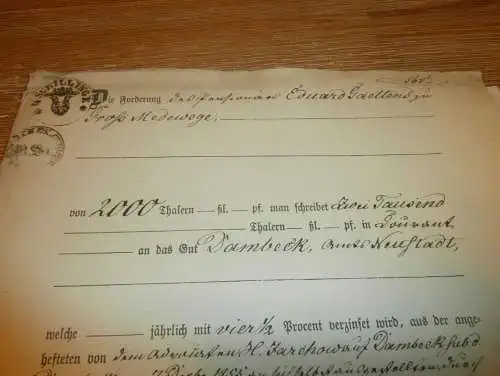 4 SCHILLINGE
565.
Die Forderung des Pensionairs Eduard Gaettens zu
Groß Medewege,
von 2000 Thalern — ßl. — pf. man schreibet Zwei Tausend
Thalern — ßl. — pf. in Courant
an das Gut Dambeck, Amts Neustadt,
welche jährlich mit vier 1/2 Procent verzinset wird, aus der ange-
hefteten von dem Advocaten H. Jarchow auf Dambeck sub d